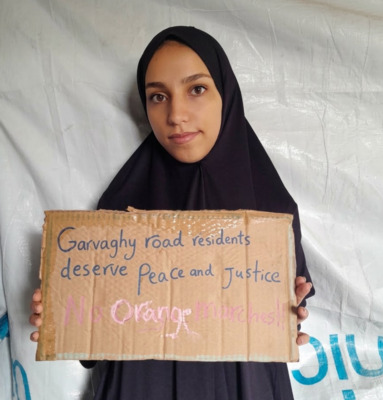 Garvaghy road residents
deserve Peace and Justice
No Orange Marches!